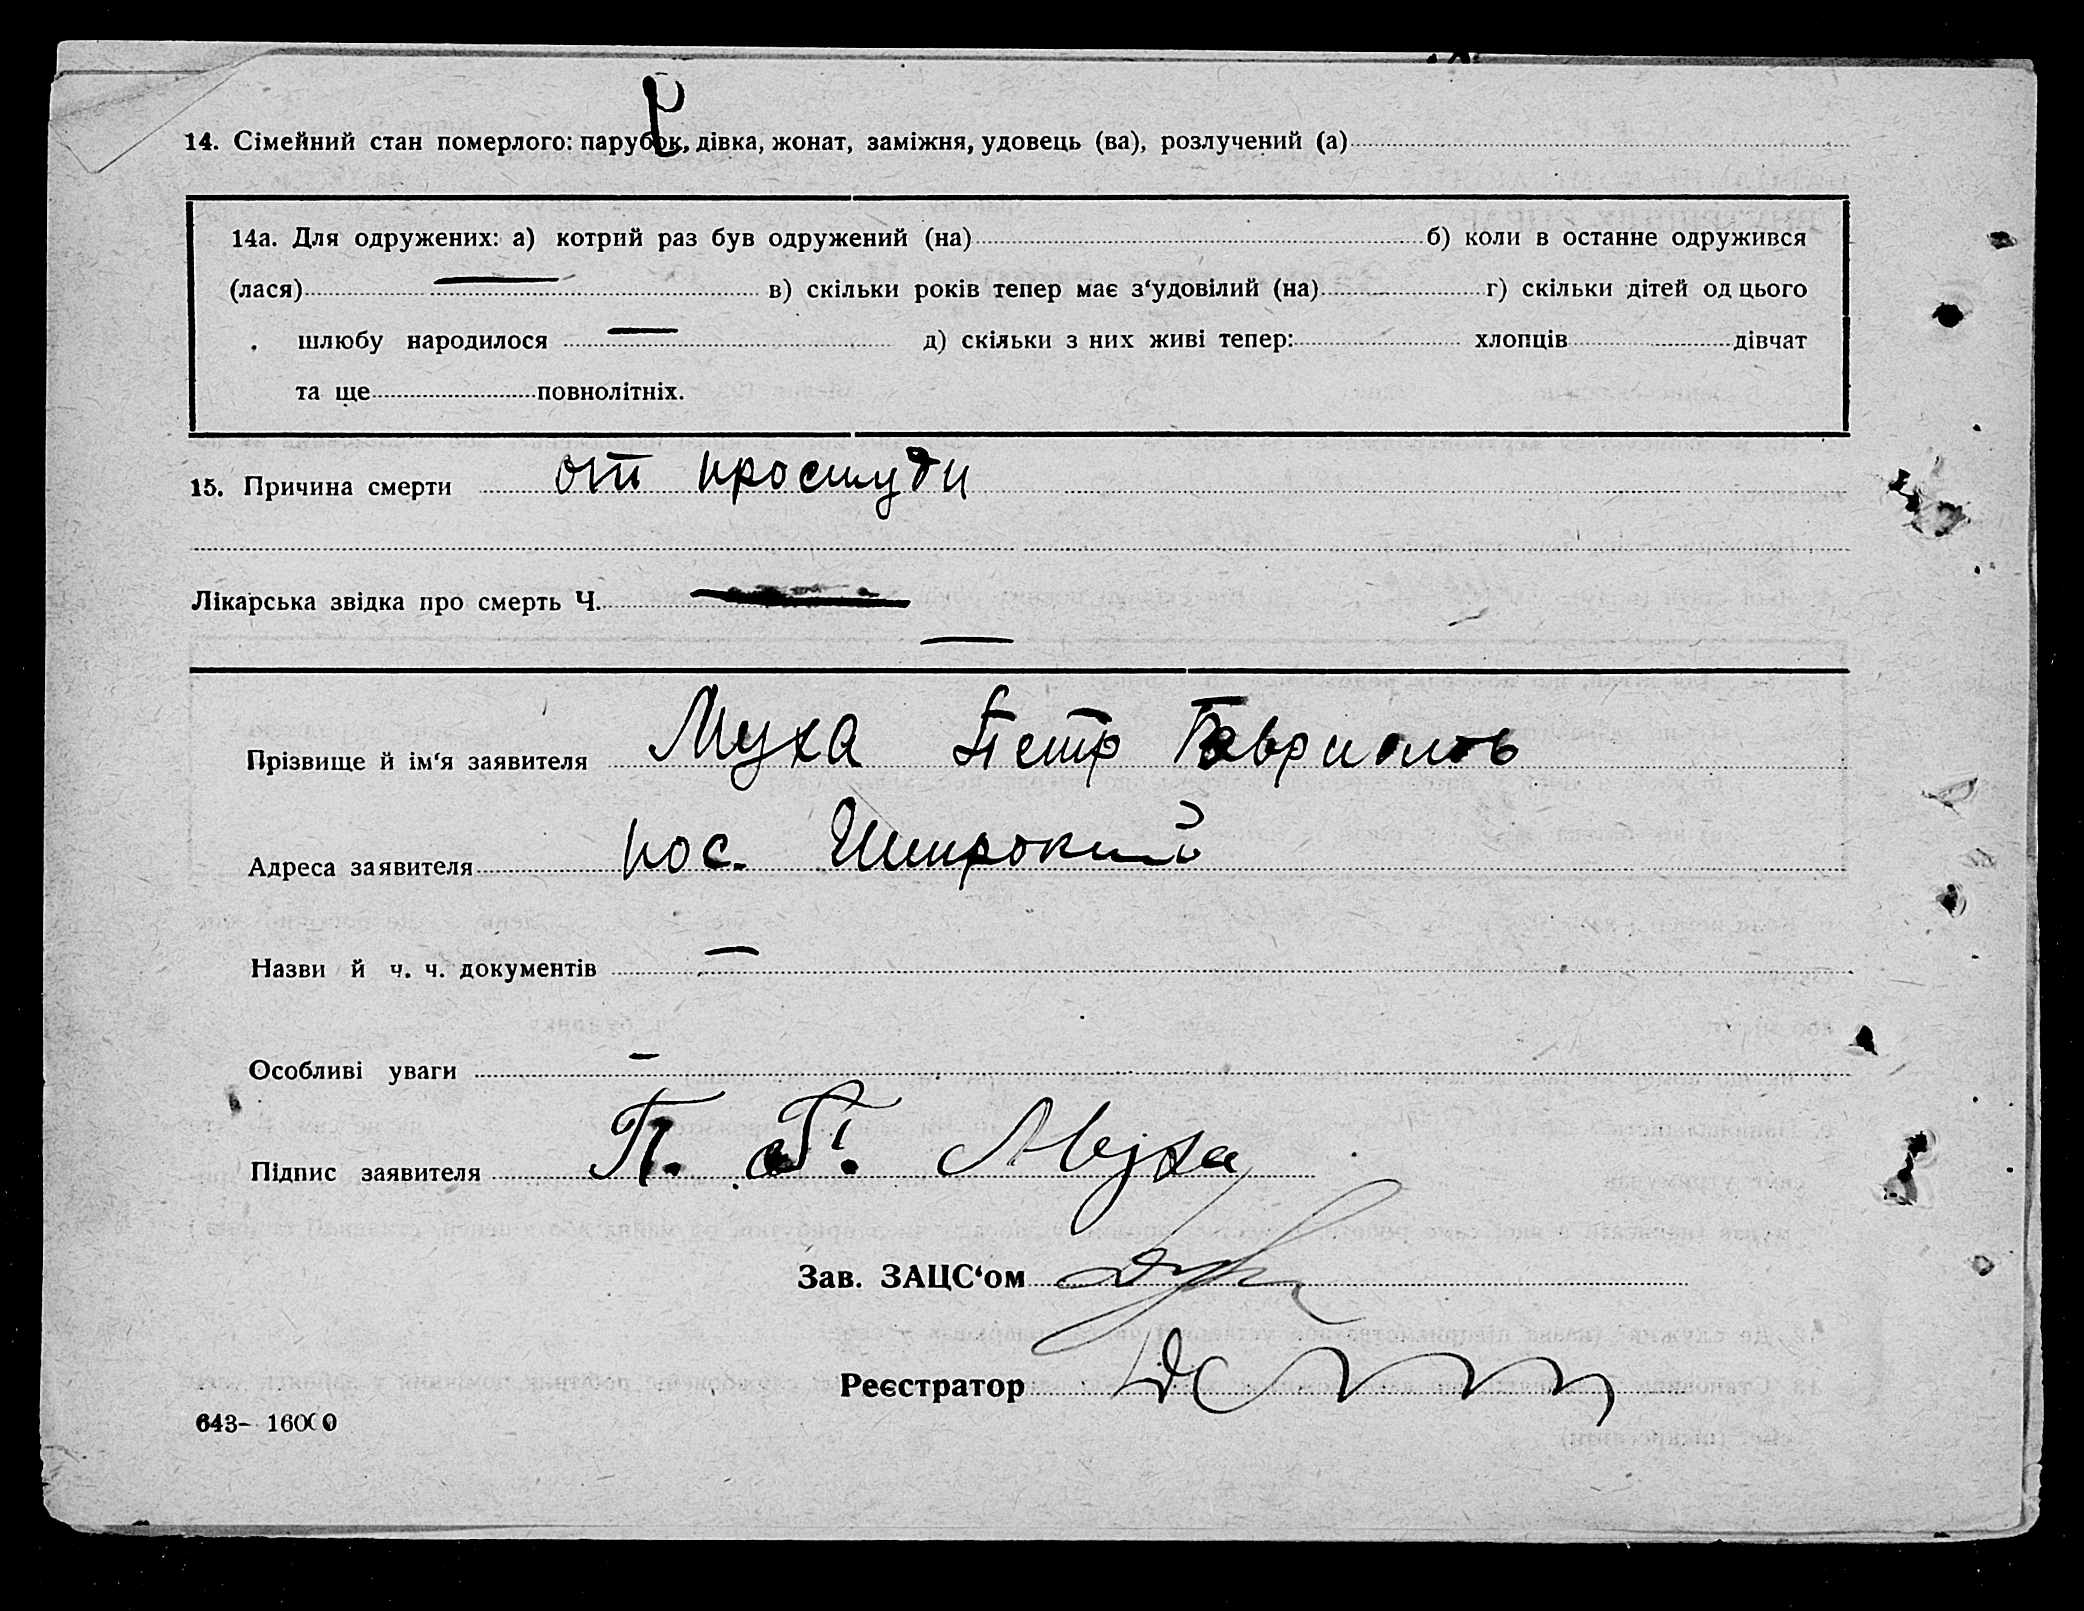 14. Сімейний стан померлого: парубок, дівка, жонат, заміжня, удовець (ва), розлучений (а)
14а. Для одружених: а) котрий раз був одружений (на) б) коли в останне одружився
(лася) в) скільки років тепер має з‘удовілий (на) г) скільки дітей од цього
шлюбу народилося — д) скільки з них живі тепер: хлопців дівчат
та ще повнолітніх.
15. Причина смерти от простуди
Лікарська звідка про смерть Ч.
Прізвище й ім‘я заявителя Муха Петр
Адреса заявителя пос. Широкий
Назви й ч. ч. документів —
Особливі уваги —
Підпис заявителя П. Г. Муха
Зав. ЗАЦС‘ом
Реєстратор
643- 16000